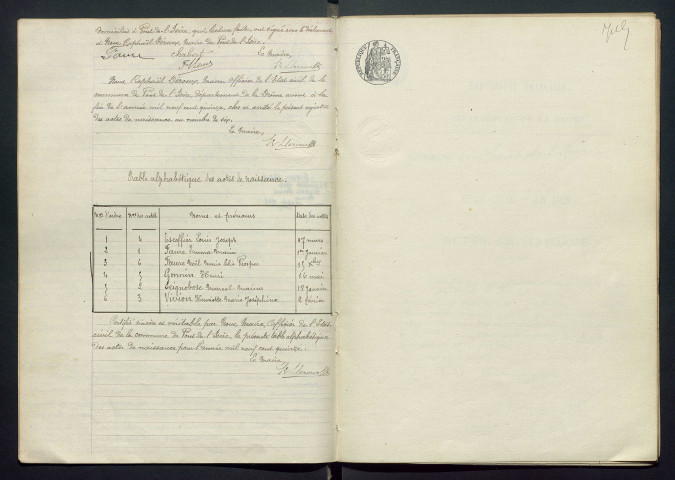 domiciliés à Pont-de-l'Isère, qui, lecture faite, ont signé avec le déclarant
et Nous, Raphaël, Maire de Pont-de-l'Isère.
Faure Le Maire,
Nous, Raphaël, Maire, Officier de l'Etat civil de la
commune de Pont de l'Isère, département de la Drôme, avons à la
fin de l'année mil neuf cent quinze, clos et arrêté le présent registre
des actes de naissance au nombre de six.
Le Maire,
Table alphabétique des actes de naissance.
Nos d'ordre Nos des actes Noms et prénoms Date des actes
1 4 Escoffier Louis Joseph 17 mars
2 1 Faure Emma 1er Janvier
3 6 Faure Noël Prosper 15 Xbre
4 5 Henri 16 mai
5 2 Seignobosc 18 Janvier
6 3 Vivion Henriette Marie Joséphine 2 février
Certifié sincère et véritable par Nous Maire, Officier de l'Etat-
civil de la commune de Pont de l'Isère, la présente table alphabétique
des actes de naissance pour l'année mil neuf cent quinze.
Le Maire,
RÉPUBLIQUE FRANÇAISE